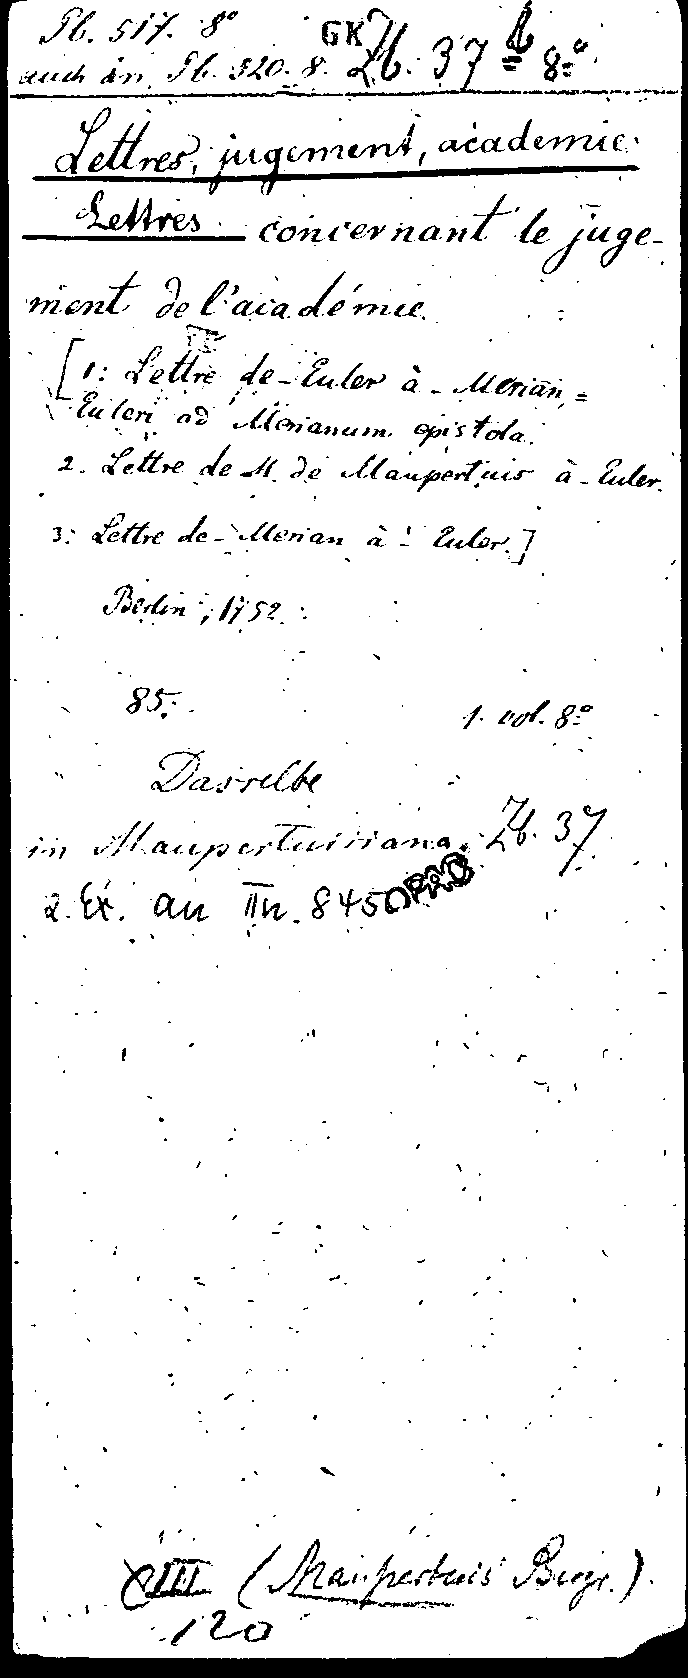 Pb. 517. 8°
GK Zb. 37 b 8°
auch in Pb. 520. 8.
Lettres, jugement, academie.
Lettres concernant le juge-
ment de l'académie.
[1: Lettre de Euler à Merian =
Euleri ad Merianum epistola.
2. Lettre de M. de Maupertuis à Euler.
3: Lettre de Merian à Euler.]
Berlin, 1752.
85.
1. vol. 8°
Dasselbe
in Maupertuisiana. Zb. 37
2. Ex. an IIn. 8450
XIII (Maupertuis Biogr.)
120